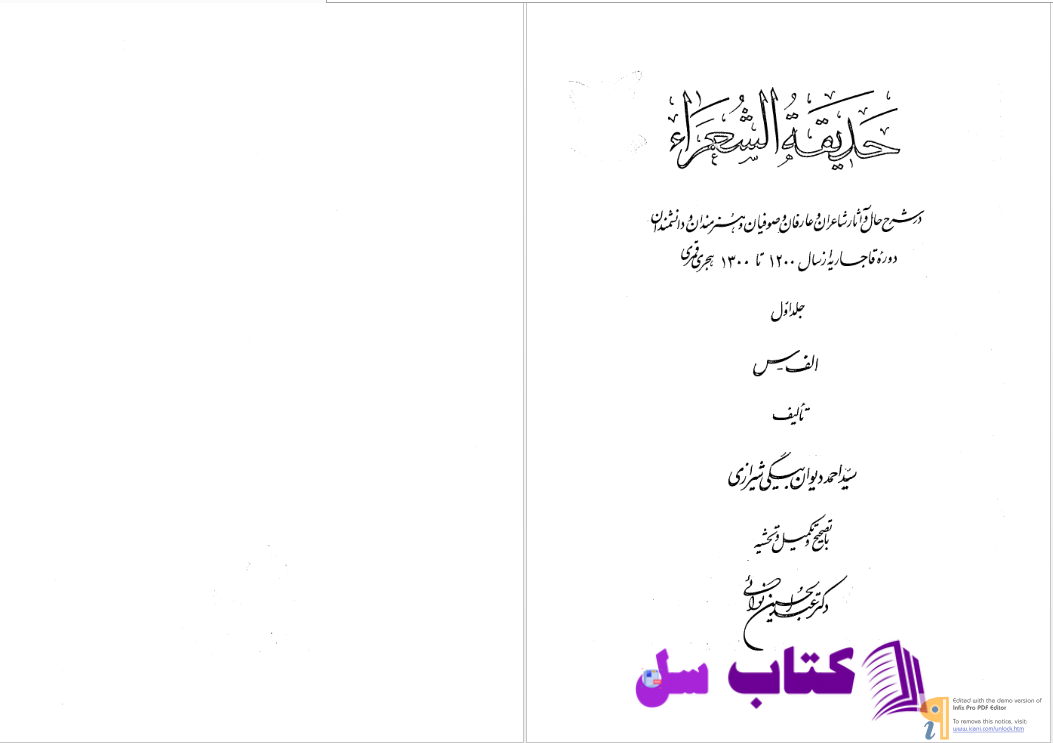 حَدیقَةُ الشُّعَراء
در شرح حال و آثار شاعران و عارفان و صوفیان و هنرمندان و دانشمندان
دورهٔ قاجاریه از سال ۱۲۰۰ تا ۱۳۰۰ هجری قمری
جلد اوّل
الف - س
تألیف
سیّد احمد دیوان بیگی شیرازی
با تصحیح و تکمیل و تحشیه
دکتر عبدالحسین نوائی
کتاب سل
Edited with the demo version of
Infix Pro PDF Editor
To remove this notice, visit:
www.iceni.com/unlock.htm